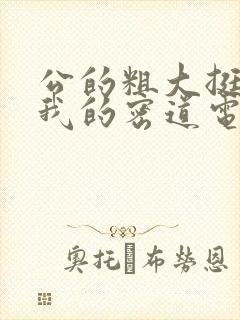 公的粗大挺
我的密道電
奥托 布勞恩